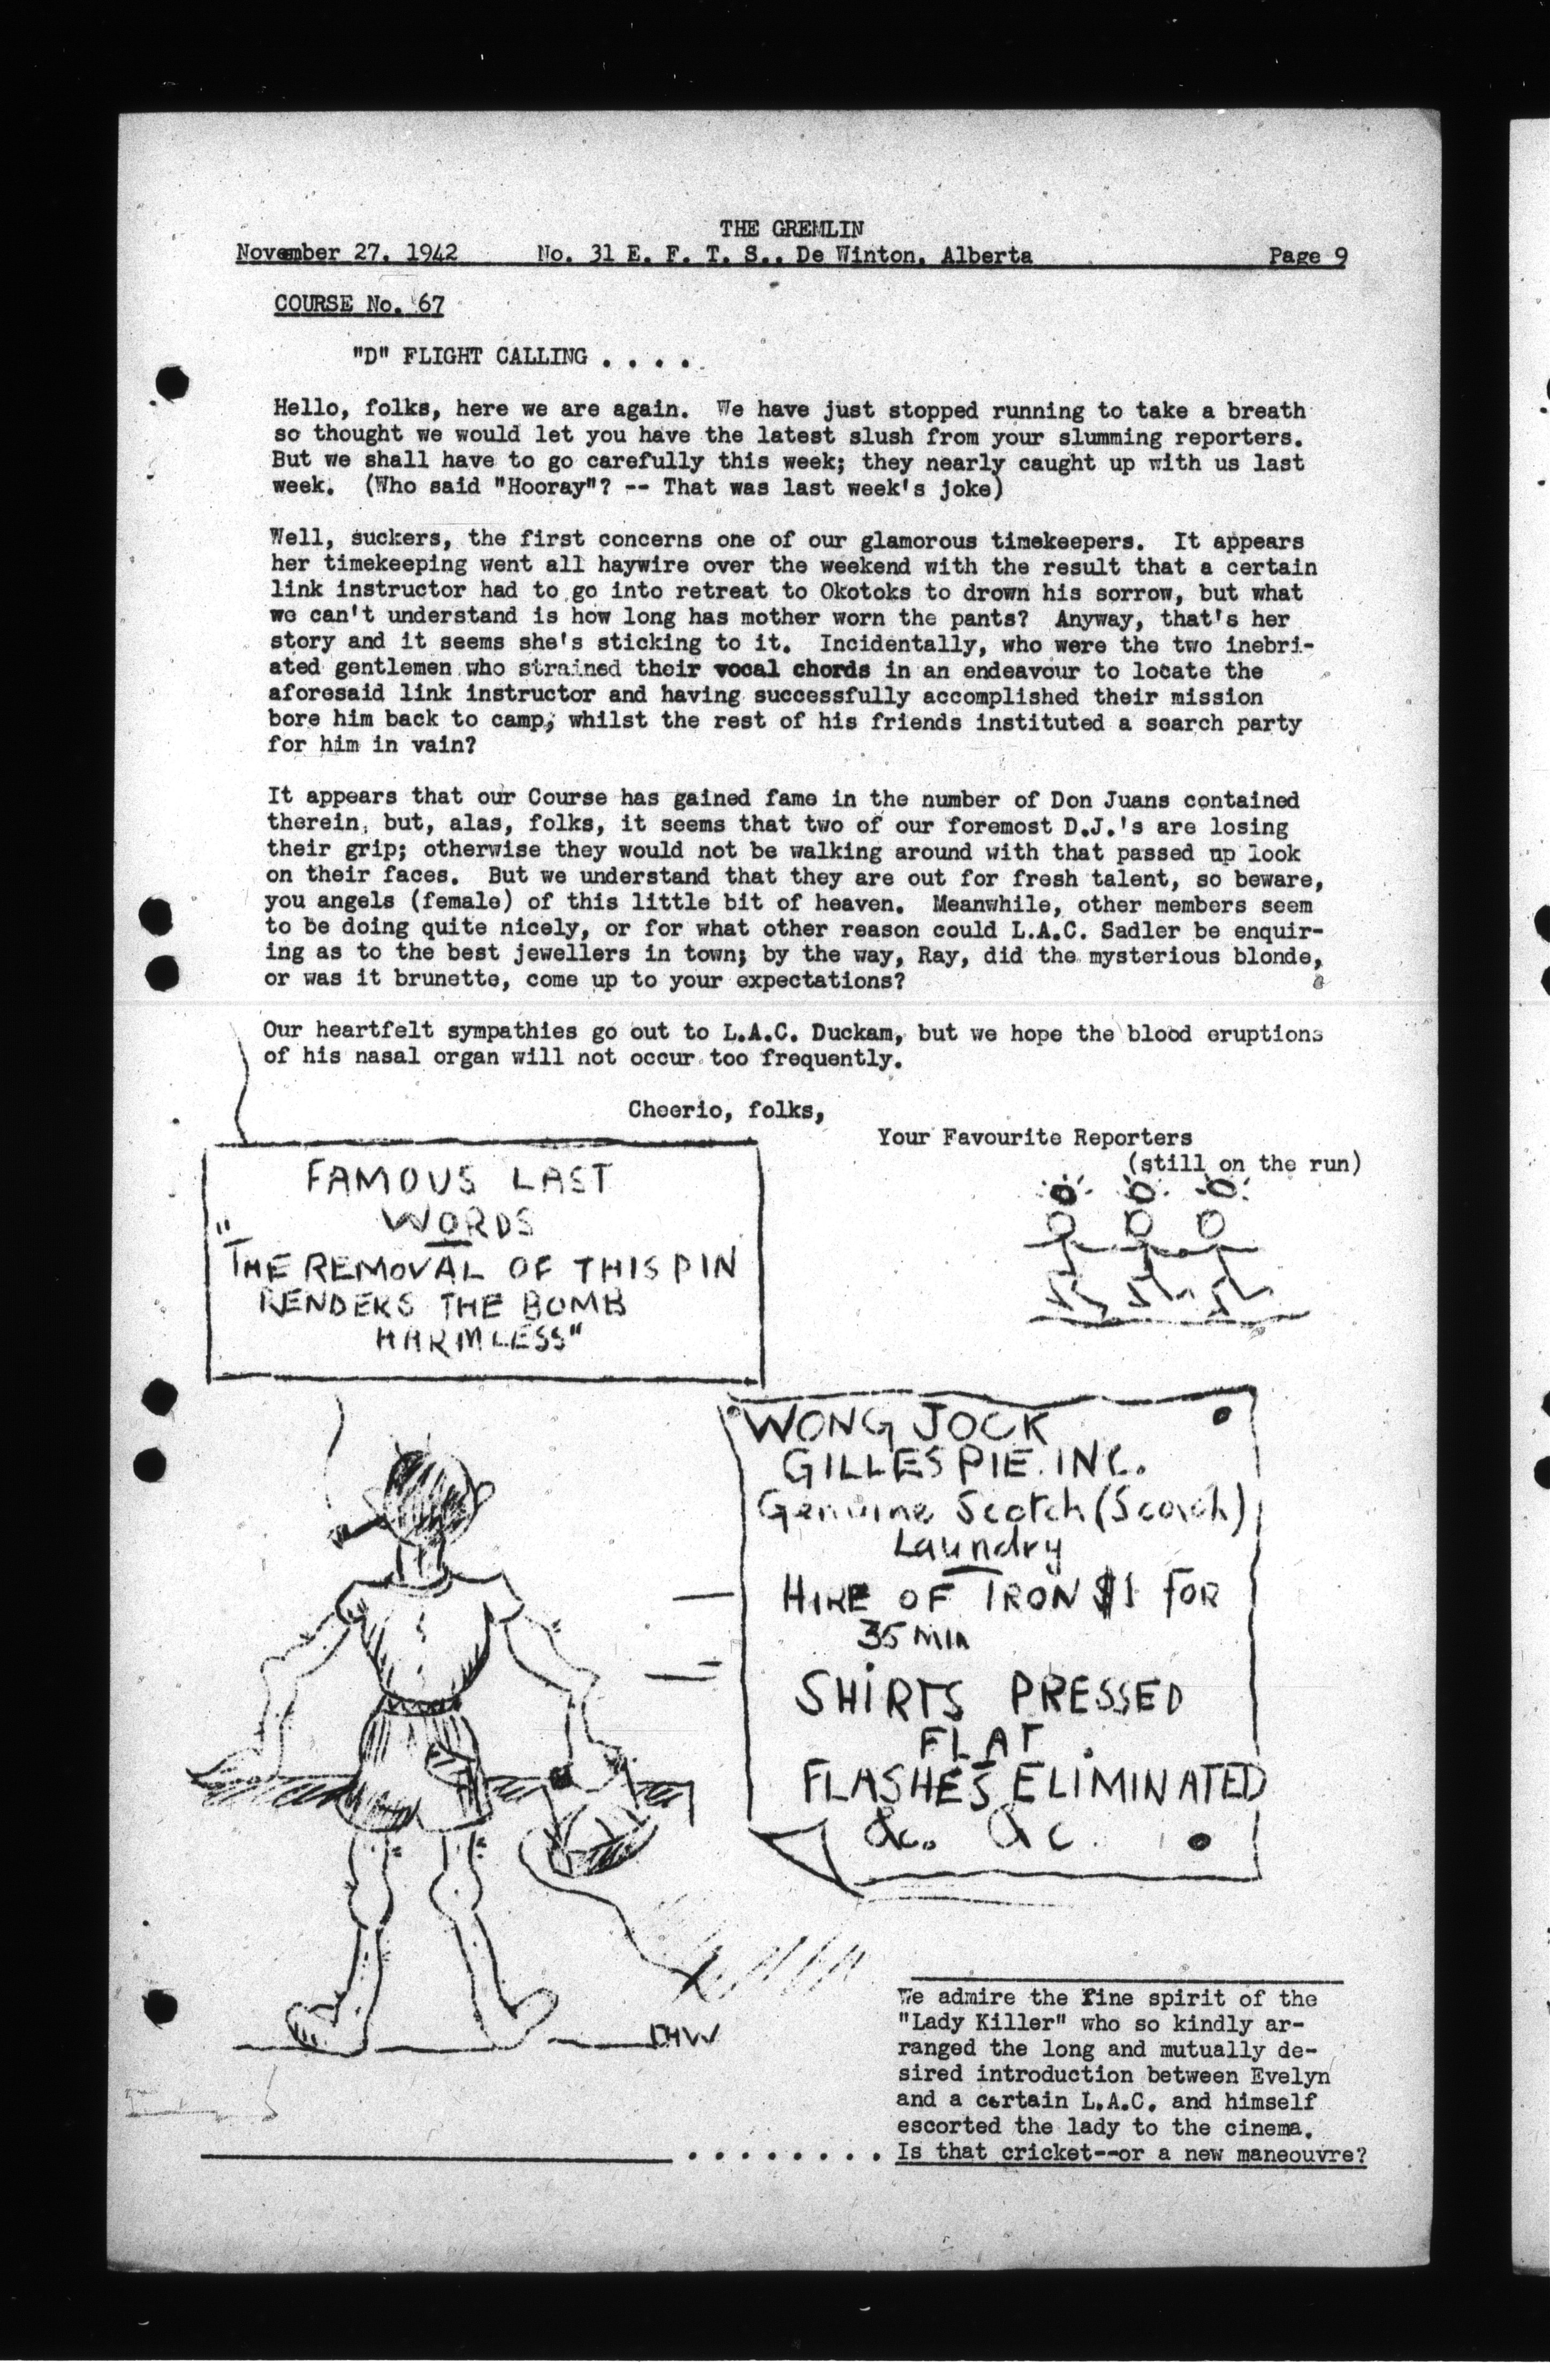 THE GREMLIN
November 27, 1942 No. 31 E. F. T. S., De Winton, Alberta Page 9
COURSE No. 67
"D" FLIGHT CALLING . . . .
Hello, folks, here we are again. We have just stopped running to take a breath
so thought we would let you have the latest slush from your slumming reporters.
But we shall have to go carefully this week; they nearly caught up with us last
week. (Who said "Hooray"? -- That was last week's joke)
Well, suckers, the first concerns one of our glamorous timekeepers. It appears
her timekeeping went all haywire over the weekend with the result that a certain
link instructor had to go into retreat to Okotoks to drown his sorrow, but what
we can't understand is how long has mother worn the pants? Anyway, that's her
story and it seems she's sticking to it. Incidentally, who were the two inebri-
ated gentlemen who strained their vocal chords in an endeavour to locate the
aforesaid link instructor and having successfully accomplished their mission
bore him back to camp, whilst the rest of his friends instituted a search party
for him in vain?
It appears that our Course has gained fame in the number of Don Juans contained
therein, but, alas, folks, it seems that two of our foremost D.J.'s are losing
their grip; otherwise they would not be walking around with that passed up look
on their faces. But we understand that they are out for fresh talent, so beware,
you angels (female) of this little bit of heaven. Meanwhile, other members seem
to be doing quite nicely, or for what other reason could L.A.C. Sadler be enquir-
ing as to the best jewellers in town; by the way, Ray, did the mysterious blonde,
or was it brunette, come up to your expectations?
Our heartfelt sympathies go out to L.A.C. Duckam, but we hope the blood eruptions
of his nasal organ will not occur too frequently.
Cheerio, folks,
Your Favourite Reporters
(still on the run)
FAMOUS LAST
WORDS
"THE REMOVAL OF THIS PIN
RENDERS THE BOMB
HARMLESS"
WONG JOCK
GILLESPIE. INC.
Genuine Scotch (Scorch)
Laundry
HIRE OF IRON $1 FOR
35 MIN
SHIRTS PRESSED
FLAT.
FLASHES ELIMINATED
&c. &c.
DHW
We admire the fine spirit of the
"Lady Killer" who so kindly ar-
ranged the long and mutually de-
sired introduction between Evelyn
and a certain L.A.C. and himself
escorted the lady to the cinema.
. . . . . . . . Is that cricket--or a new maneouvre?